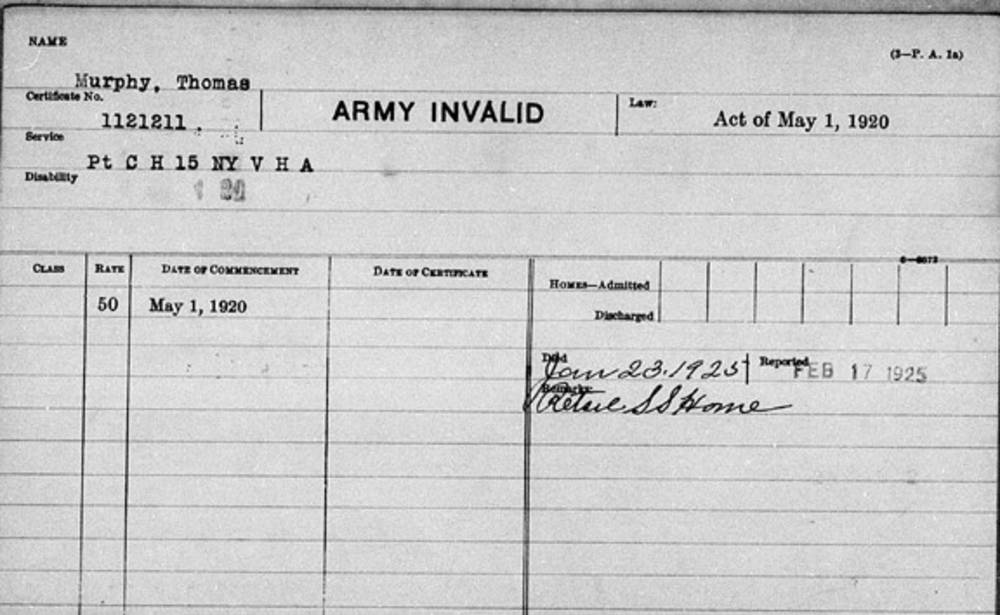 NAME
(3—P. A. 1a)
Murphy, Thomas
Certificate No.
1121211
ARMY INVALID
Law:
Act of May 1, 1920
Service
Pt C H 15 NY V H A
Disability
CLASS RATE DATE OF COMMENCEMENT DATE OF CERTIFICATE
HOMES—Admitted
Discharged
50 May 1, 1920
Died Jan 23. 1925 Reported FEB 17 1925
Remarks: S S Home